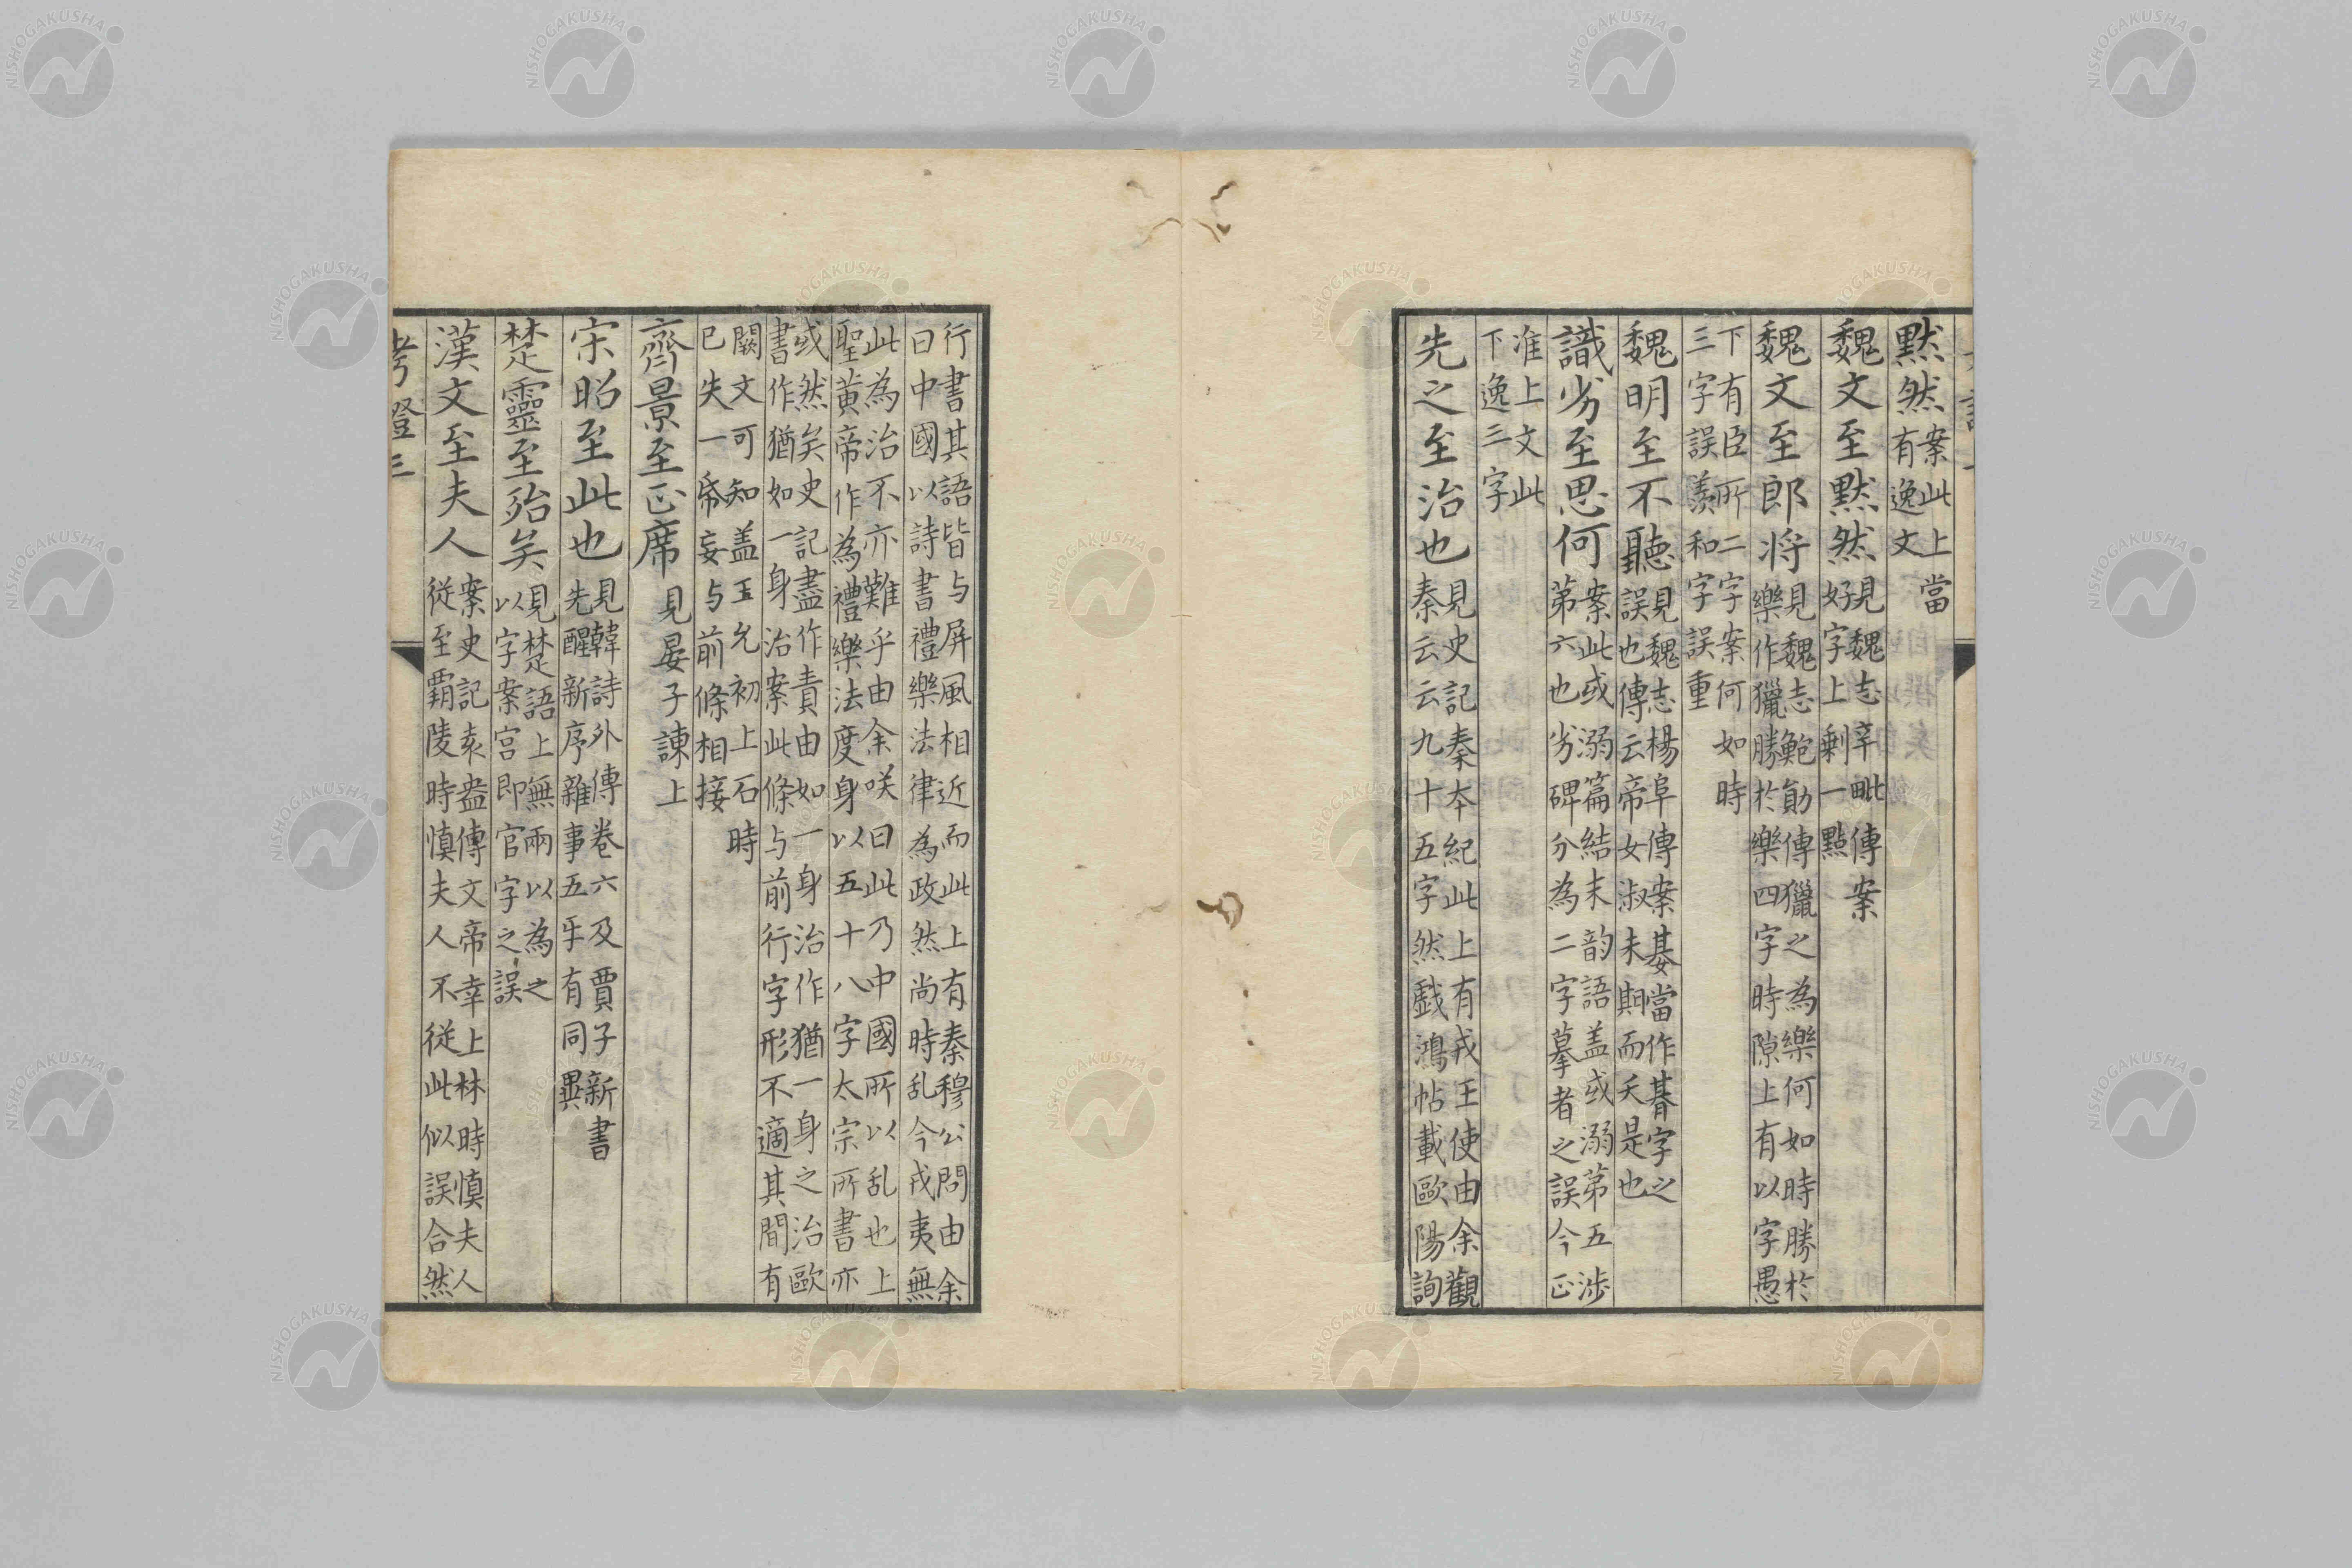 默然案此上當
有逸文
魏文至默然見魏志辛毗傳案
好字上剩一點
魏文至郎将見魏志鮑勛傳獵之為樂何如時勝於
樂作獵勝於樂四字時隙上有以字愚
下有臣所二字案何如時
三字誤羨和字誤重
魏明至不聽見魏志楊阜傳案基當作朞字之
誤也傳云帝女淑未期而夭是也
識劣至思何案此或溺篇結末韵語盖或溺第五涉
第六也劣碑分為二字摹者之誤今正
准上文此
下逸三字
先之至治也見史記秦本紀此上有戎王使由余觀
秦云云九十五字然戲鴻帖載歐陽詢
行書其語皆与屏風相近而此上有秦穆公問由余
曰中國以詩書禮樂法律為政然尚時乱今戎夷無
此為治不亦難乎由余咲曰此乃中國所以乱也上
聖黄帝作為禮樂法度身以五十八字太宗所書亦
或然矣史記盡作責由如一身治作猶一身之治歐
書作猶如一身治案此條与前行字形不適其間有
闕文可知盖玉允初上石時
已失一帋妄与前條相接
齊景至正席見晏子諫上
宋昭至此也見韓詩外傳卷六及賈子新書
先醒新序雜事五乎有同異
楚靈至殆矣見楚語上無兩以為之
以字案宫即官字之誤
漢文至夫人案史記袁盎傳文帝幸上林時慎夫人
従至覇陵時慎夫人不従此似誤合然
考證三